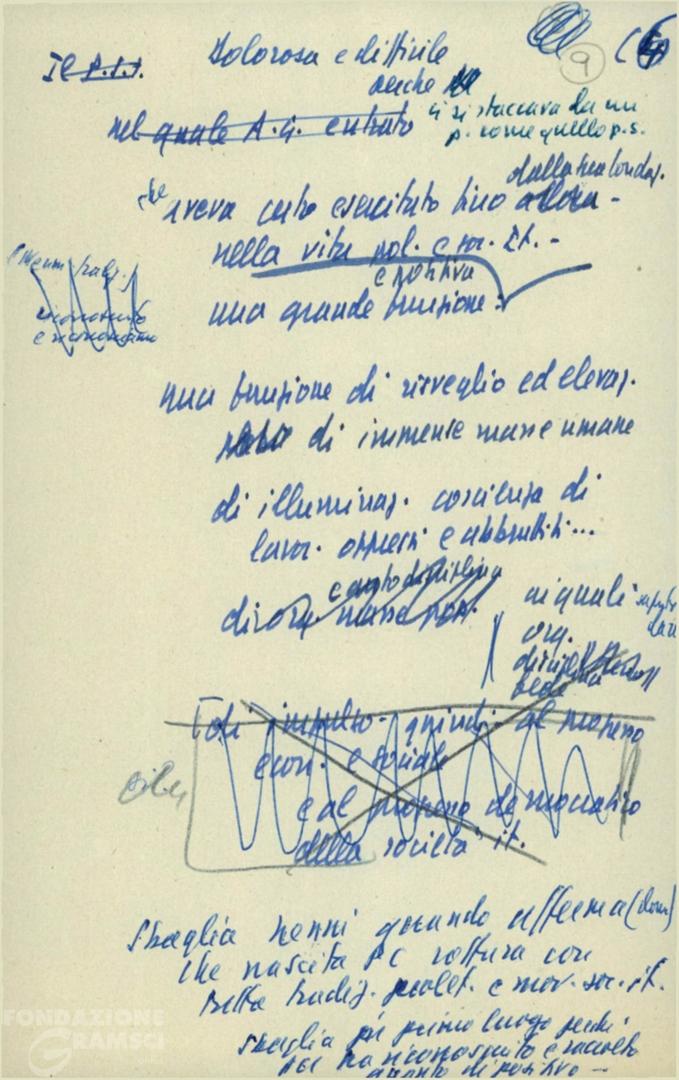 Il P.S.I. Dolorosa e difficile
anche
9
nel quale A. G. entrato
ci si staccava da un
p. come quello p.s.
che
dalla sua fondaz.
aveva certo esercitato fino allora -
nella vita pol. e soc. it. -
e positiva
una grande funzione:
riconosciuto
e riconosciamo
una funzione di risveglio ed elevaz.
di immense masse umane
di illuminaz. coscienza di
lavor. oppressi e abbrutiti...
e autodisciplina
di org. masse pop.
ai quali
org.
disciplina
fede
di impulso - quindi - al progresso
econ. e sociale
e al progresso democratico
della società it.
Sbaglia Nenni quando afferma
che nascita PC rottura con
tutta tradiz. prolet. e mov. soc. it.
Sbaglia in primo luogo perché
PCI ha riconosciuto e raccolto
quanto di positivo -
FONDAZIONE
GRAMSCI